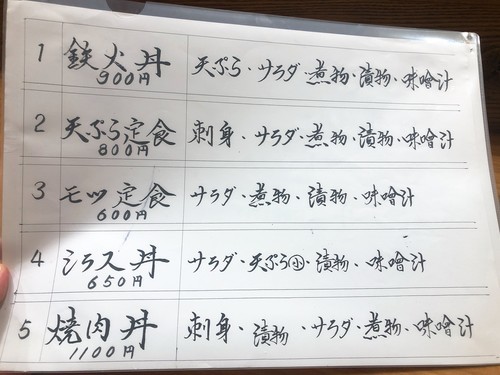 1 鉄火丼 天ぷら・サラダ・煮物・漬物・味噌汁
900円
2 天ぷら定食 刺身・サラダ・煮物・漬物・味噌汁
800円
3 モツ定食 サラダ・煮物・漬物・味噌汁
600円
4 シラス丼 サラダ・天ぷら小・漬物・味噌汁
650円
5 焼肉丼 刺身・漬物・サラダ・煮物・味噌汁
1100円